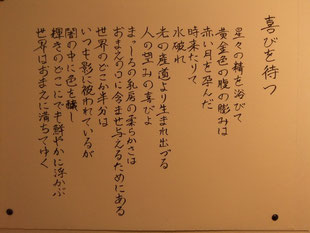 喜びを待つ
星々の精を浴びて
黄金色の腹の膨みは
赤い月を孕んだ
時来たりて
水破れ
老の産道より生まれ出づる
人の望みの喜びよ
まっしろの乳房の柔らかさは
おまえの口に含ませ与えるためにある
世界のどこか半分は
いつも影に被われているが
闇の中に色を横し
輝きのどこにでも鮮やかに浮かぶ
世界はおまえに満ちてゆく